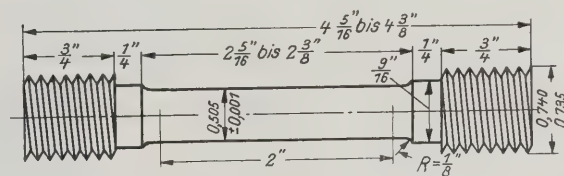 4 5/16" bis 4 3/8"
3/4" 1/4" 2 5/16" bis 2 3/8" 1/4" 3/4"
9/16"
0,505 ±0,001
0,740
0,735
2"
R=1/8"